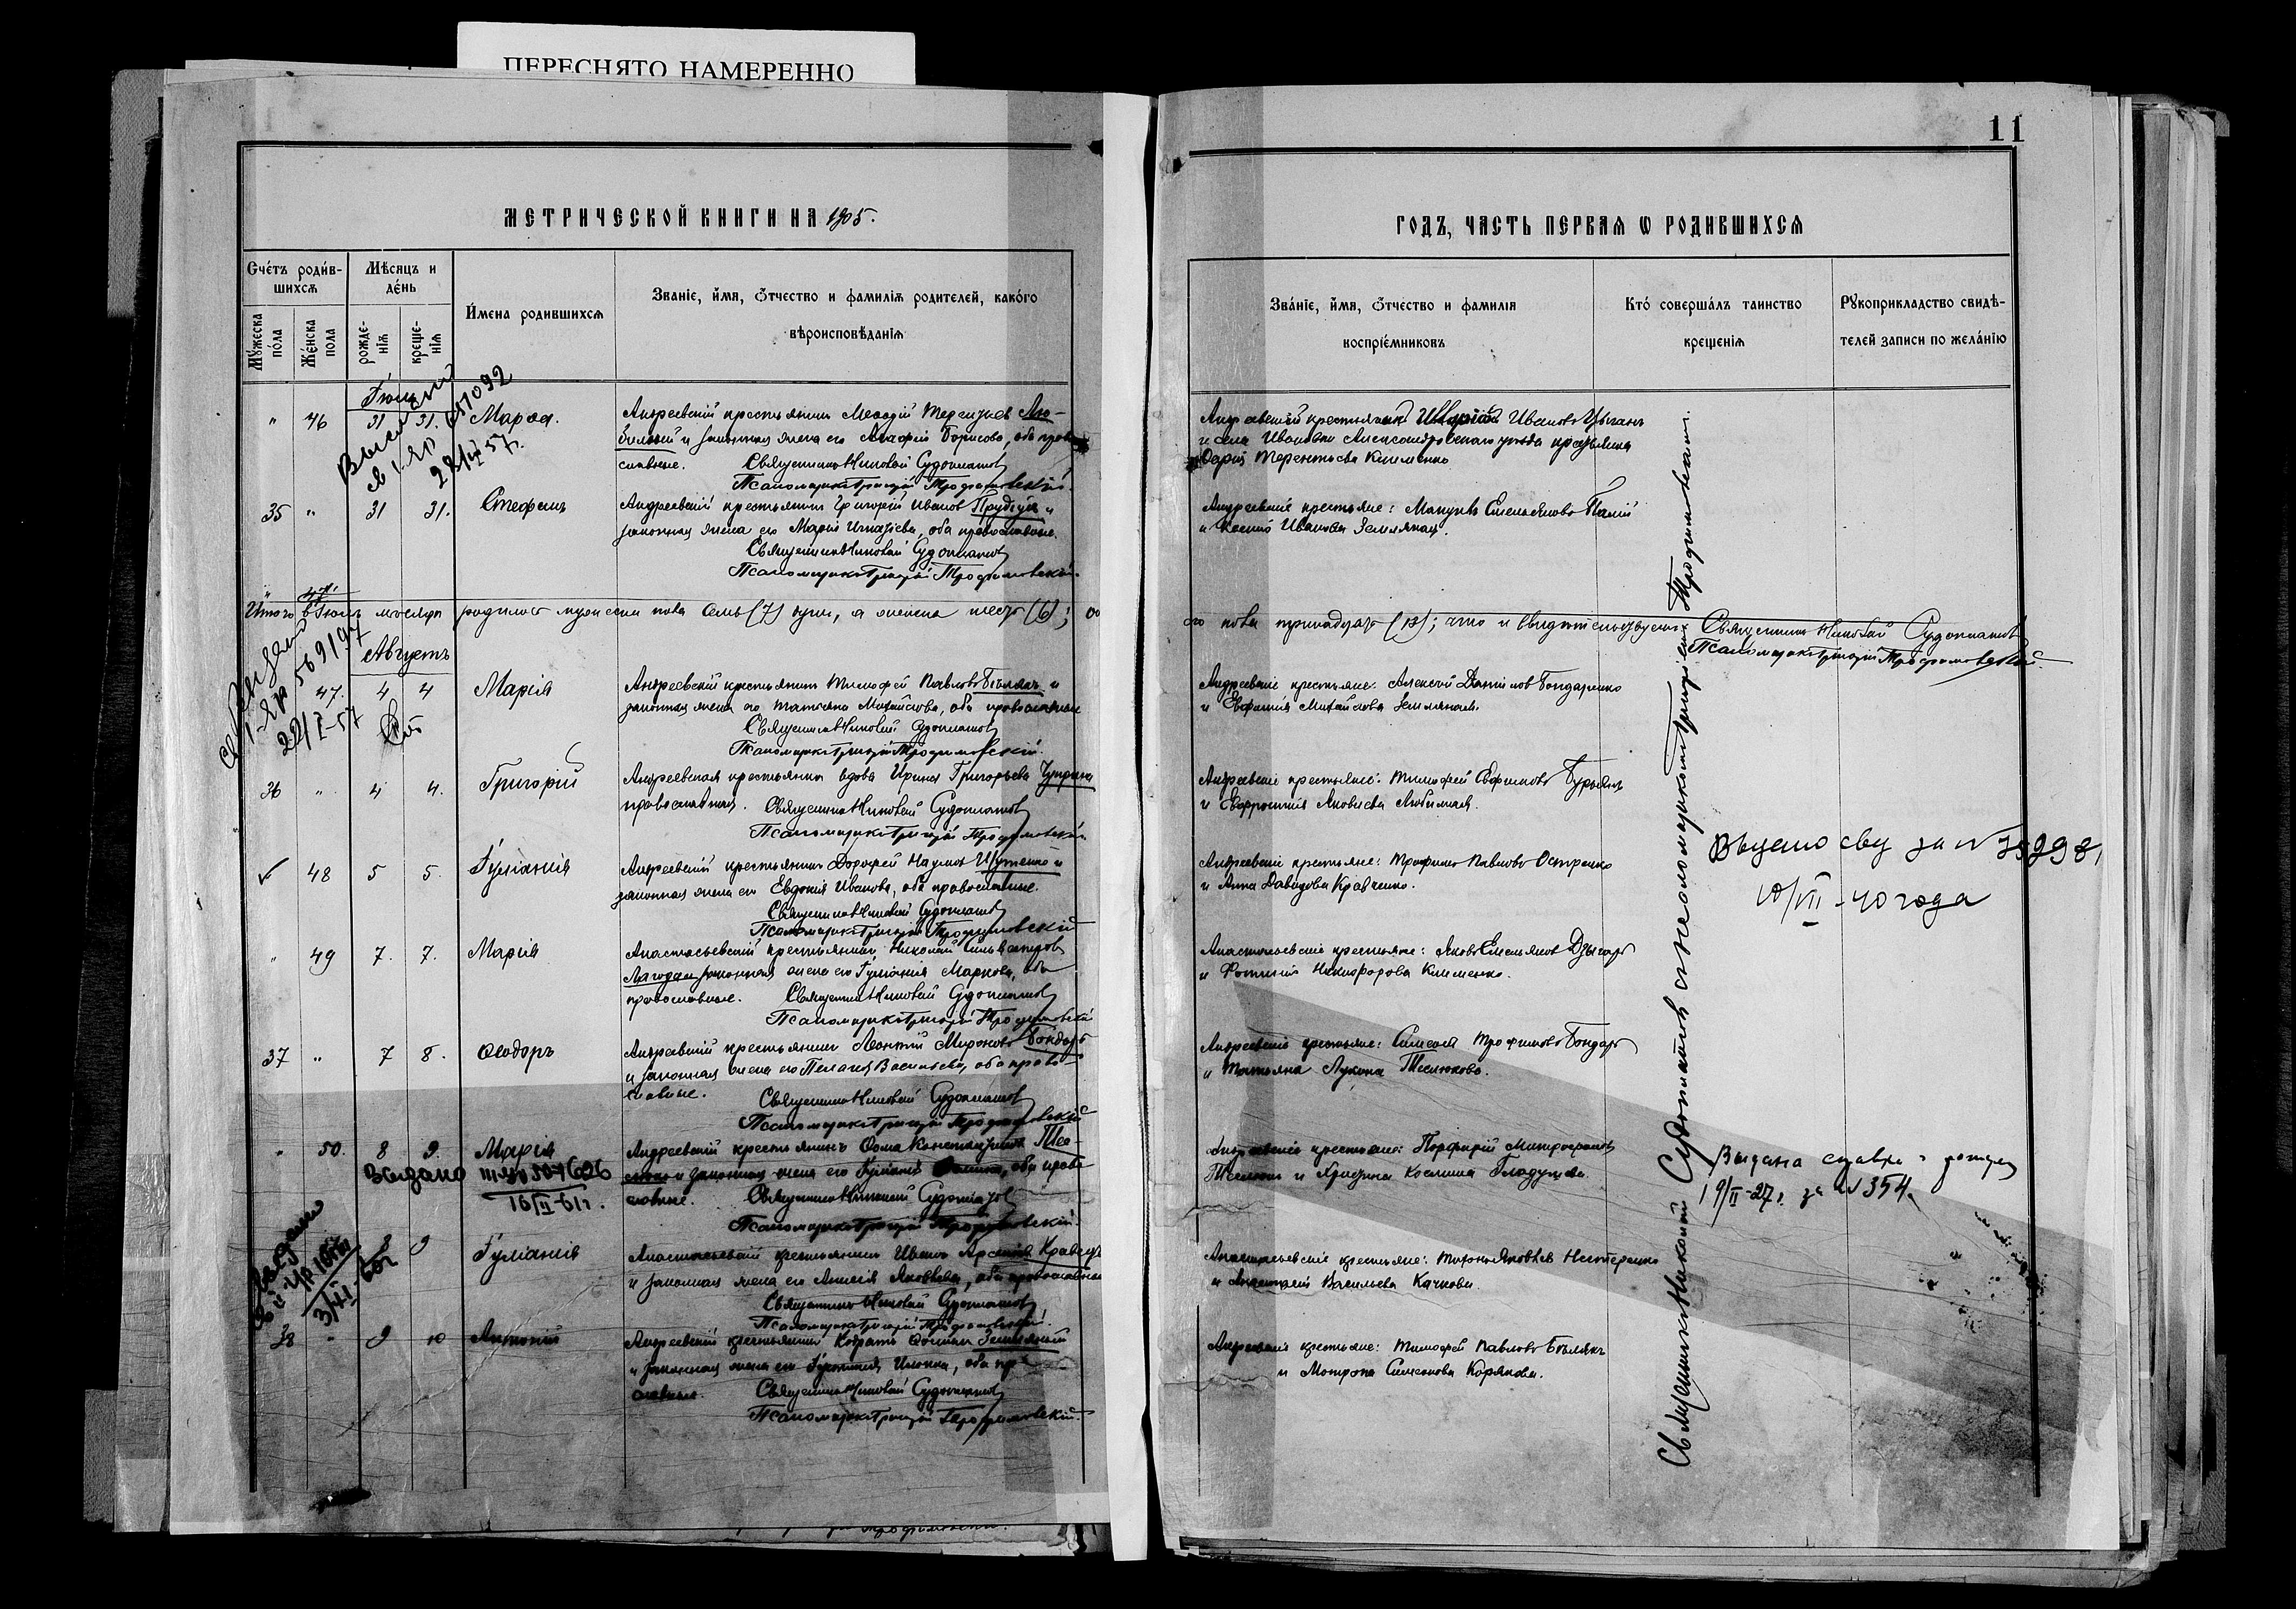 ПЕРЕСНЯТО НАМЕРЕННО
11
МЕТРИЧЕСКОЙ КНИГИ НА 1905.
ГОДЪ, ЧАСТЬ ПЕРВАЯ Ѡ РОДИВШИХСЯ
Счётъ родив-
шихся
Мѣсяцъ и
день
Мужеска
пола
Женска
пола
рожде-
нія
креще-
нія
Имена родившихся
Званіе, имя, отчество и фамилія родителей, какого
вѣроисповѣданія
Званіе, имя, отчество и фамилія
воспріемниковъ
Кто совершалъ таинство
крещенія
Рукоприкладство свидѣ-
телей записи по желанію
Іюль
" 46 31 31. Марѳа.
Андреевскій крестьянинъ Меѳодій Терентьевъ Лю-
бимый и законная жена его Агафія Борисова, оба право
славные. Священникъ Николай Судоплатовъ
Псаломщикъ Григорій Трофимовскій.
Андреевскій крестьянинъ Иванов Цыганъ
и села Ивановки Александровскаго уѣзда крестьянка
Дарія Терентьева Клименко
35 " 31 31. Стефанъ
Андреевскій крестьянинъ Григорій Иванов Прудкій и
законная жена его Марія Игнатіева, оба православные.
Священникъ Николай Судоплатовъ
Псаломщикъ Григорій Трофимовскій.
Андреевскіе крестьяне: Мануилъ Емельяновъ Палій
и Ксенія Иванова Земляная.
Итого въ Іюлѣ мѣсяцѣ родилось мужеска пола семь (7) душъ, а женска шесть (6); обо
его пола тринадцать (13); что и свидѣтельствуемъ Священникъ Николай Судоплатовъ
Псаломщикъ Григорій Трофимовскій
Августъ
47. 4 4 Марія
Андреевскій крестьянинъ Тимофей Павловъ Бѣлякъ и
законная жена его Татьяна Михайлова, оба православные
Священникъ Николай Судоплатовъ
Псаломщикъ Григорій Трофимовскій.
Андреевскіе крестьяне: Алексѣй Даніиловъ Бондаренко
и Евфимія Михайлова Земляная.
22/I-57
36 " 4 4. Григорій
Андреевская крестьянка вдова Ирина Григорьева Чуприна
православная. Священникъ Николай Судоплатовъ
Псаломщикъ Григорій Трофимовскій
Андреевскіе крестьяне: Тимофей Ефимовъ Бурьянъ
и Евфросинія Яковлева Любимая.
48 5 5. Іуліанія
Андреевскій крестьянинъ Дорофей Наумов Шутенко и
законная жена его Евдокія Иванова, оба православные.
Священникъ Николай Судоплатовъ
Псаломщикъ Григорій Трофимовскій
Андреевскіе крестьяне: Трофимъ Павловъ Остренко
и Анна Давидова Кравченко.
Выдано свид за №
10/VII-40 года
" 49 7. 7. Марія
Анастасьевскій крестьянинъ Николай Сильвестров
законная жена его Іуліанія Маркова, оба
православные. Священникъ Николай Судоплатовъ
Псаломщикъ Григорій Трофимовскій
Анастасьевскіе крестьяне: Яковъ Емельянов Дзыгарь
и Фотинія Никифорова Клименко.
37 " 7 8. Ѳеодоръ
Андреевскій крестьянинъ Леонтій Мироновъ Бондарь
и законная жена его Пелагія Васильева, оба право-
славные. Священникъ Николай Судоплатовъ
Псаломщикъ Григорій Трофимовскій
Андреевскіе крестьяне: Симеонъ Трофимовъ Бондарь
и Татьяна Лукина Теслюкова.
" 50. 8 9. Марія
Выдано
16/II-61г.
Андреевскій крестьянинъ Ѳома Константинов Тес-
и законная жена его Іуліанія оба право
славные. Священникъ Николай Судоплатовъ
Псаломщикъ Григорій Трофимовскій.
Андреевскіе крестьяне: Порфирій Митрофанов
и Христина Космина Гладушова.
Выдана справка о рожден
19/II-27г. за № 354.
8 9 Іуліанія
Анастасьевскій крестьянинъ Иванъ Кравецъ
и законная жена его Яковлева, оба православные
Священникъ Николай Судоплатовъ
Псаломщикъ Григорій Трофимовскій.
Анастасьевскіе крестьяне: Тихонъ Яковлев Нестеренко
и Анастасія Васильева Качкова.
38 " 9 10 Антоній
Андреевскій крестьянинъ Кодратъ Ѳомин Земляной
и законная жена его оба пра
славные. Священникъ Николай Судоплатовъ
Псаломщикъ Григорій Трофимовскій.
Андреевскіе крестьяне: Тимофей Павловъ Бѣлякъ
и Мотрона Симеонова Корякова.
Священникъ Николай Судоплатов и псаломщикъ Григорій Трофимовскій.